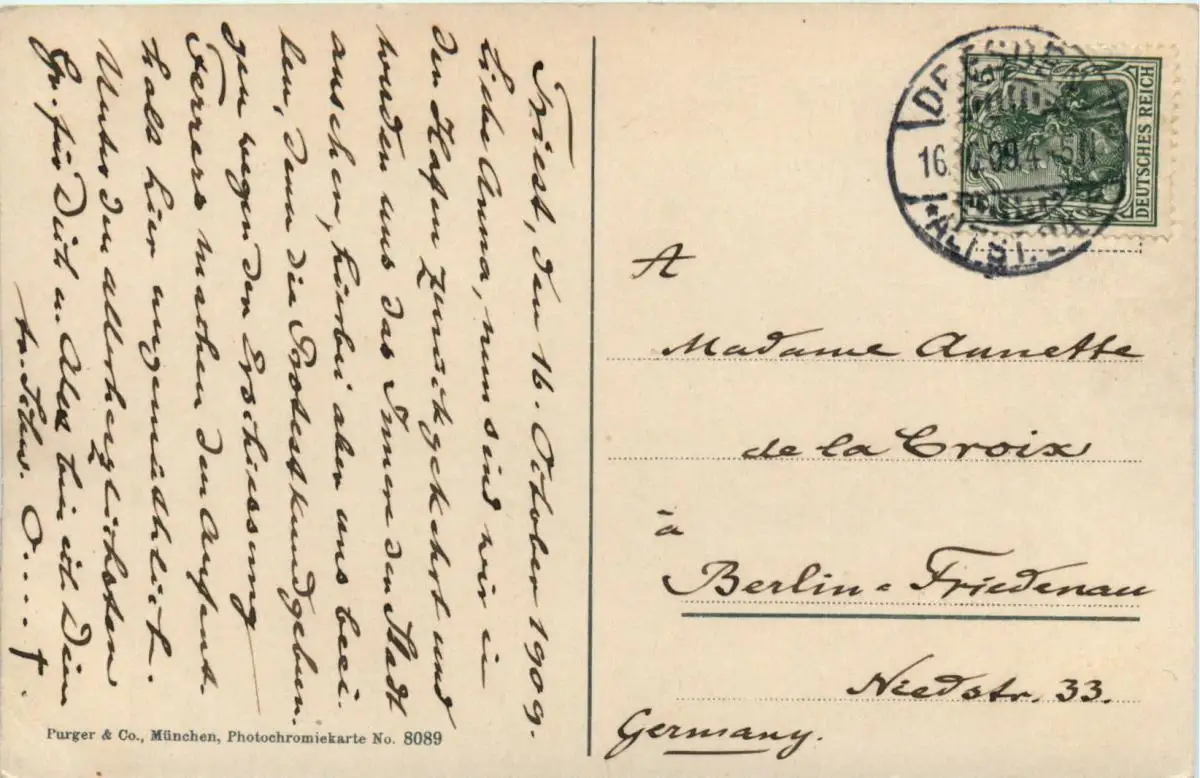 Triest, den 16. October 1909.
Liebe Anna, nun sind wir in
den Hafen zurückgekehrt und
wurden uns das Innere der Stadt
ansehen, hierbei aber uns beei-
len, denn die Protestkundgebun-
gen wegen der Erschiessung
Ferrers machen den Aufent-
halt hier ungemüthlich.
Unter den allerherzlichsten
Gr. für Dich u. Alex bin ich Dein
tr. Schw. O . . . . f.
Purger & Co., München, Photochromiekarte No. 8089
DRESDEN
16.10.09.4-5N
*ALTST. 24.
DEUTSCHES REICH
A
Madame Annette
de la Croix
à
Berlin-Friedenau
Niedstr. 33.
Germany.